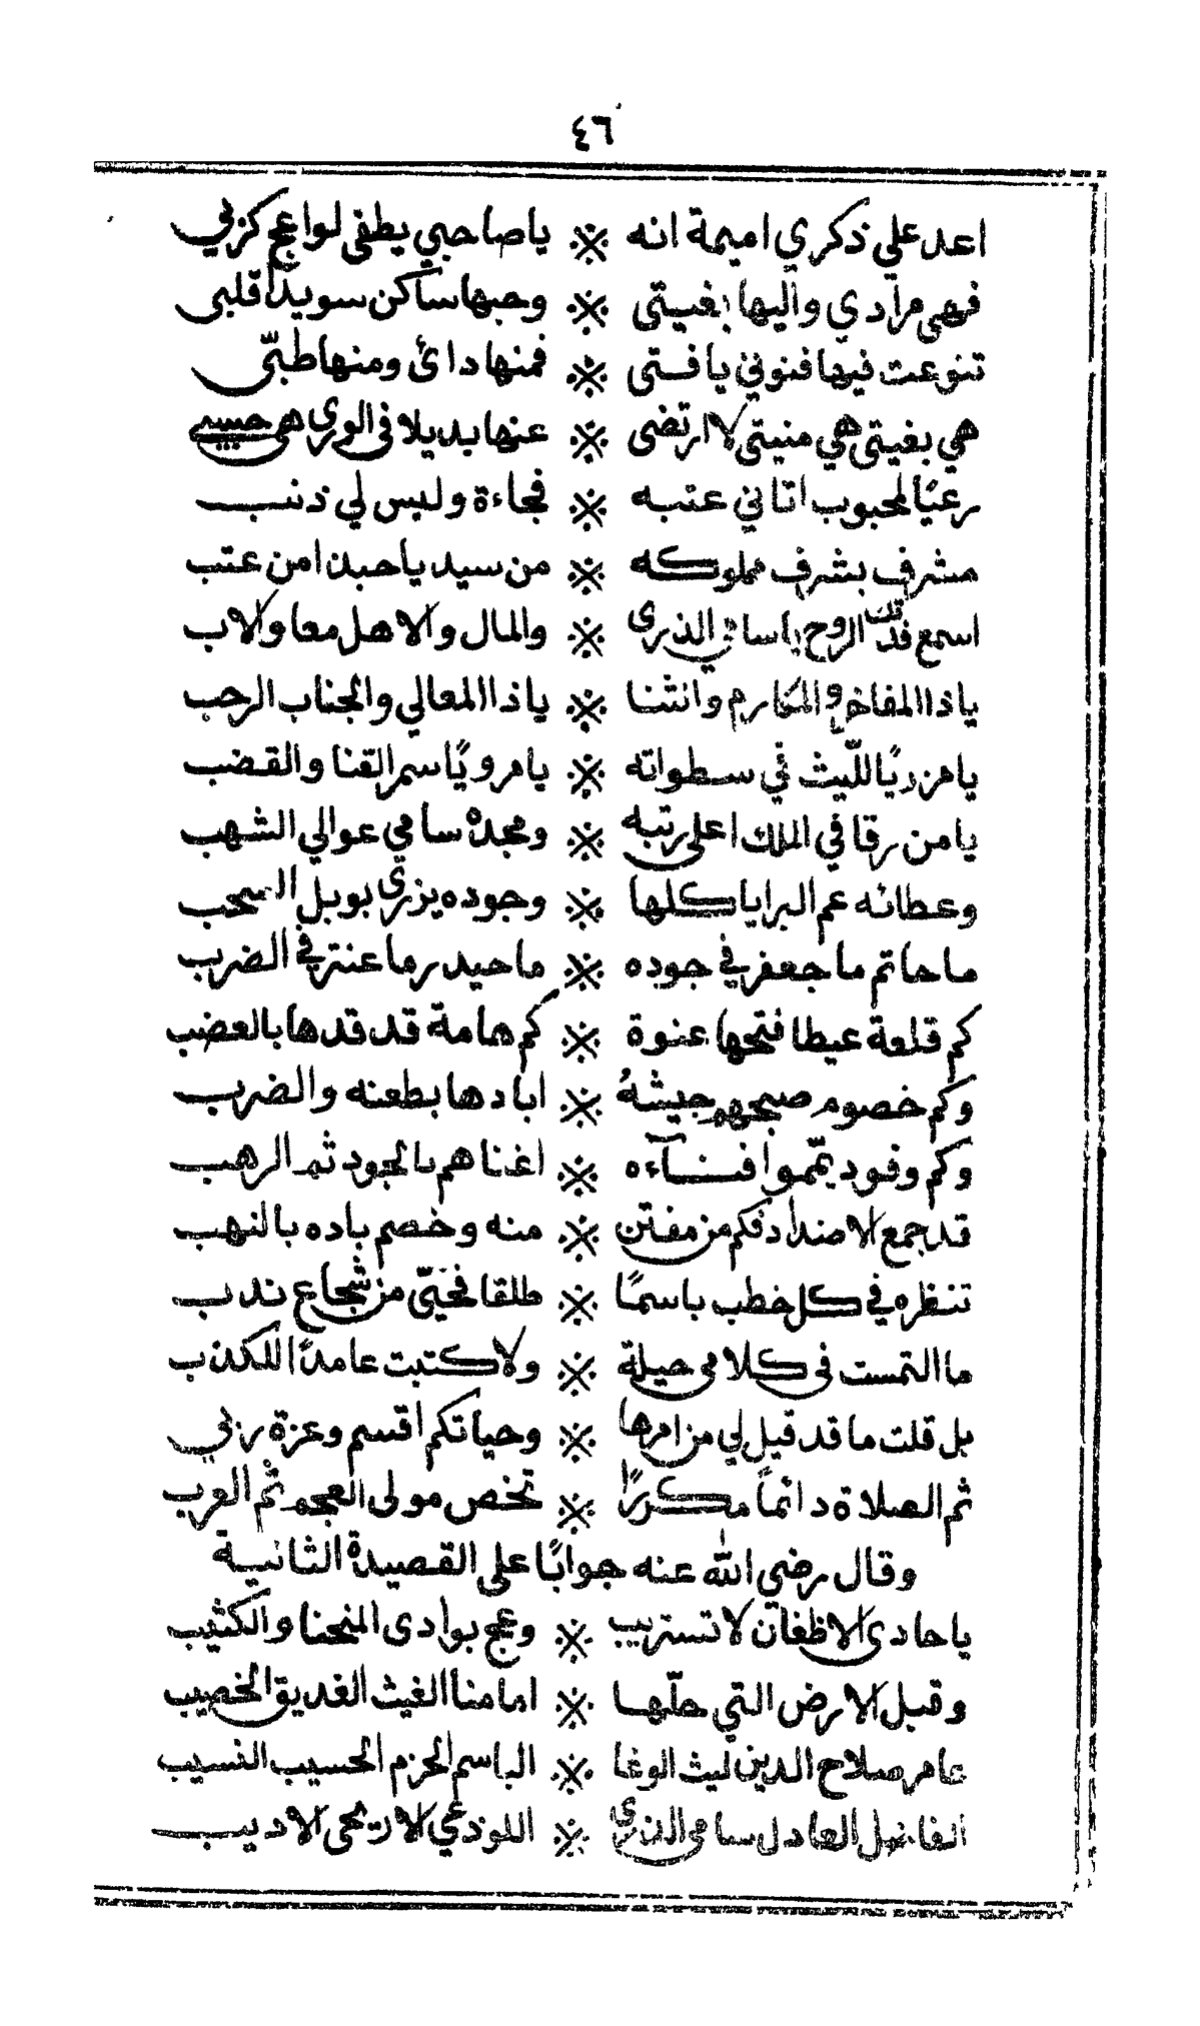 ٤٦
اعد علي ذكري اميمة انه ※ ياصاحبي يطفى لواعج كربي
فهي مرادي واليها بغيتى ※ وحبها ساكن سويدا قلبى
تنوعت فيها فنوني يا فتى ※ فمنها دائ ومنها طبّى
هي بغيتى هي منيتى لا ارتضى ※ عنها بديلا فى الورى هى حسبى
رعيًا لمحبوب اتاني عتبه ※ فجاءة وليس لي ذنب
مشرف بشرف مملوكه ※ من سيد ياحبذا من عتب
اسمع فدتك الروح ياسامي الذرى ※ والمال والاهل معا والاب
ياذا المفاخر والمكارم وانثنا ※ ياذا المعالي والجناب الرحب
يا مزريًا للّيث في سطواته ※ يا مرويًا سمر القنا والقضب
يا من رقا في الملك اعلى رتبه ※ ومجده سامي عوالي الشهب
وعطائه عم البرايا كلها ※ وجوده يزرى بوبل السحب
ما حاتم ما جعفر في جوده ※ ما حيدر ما عنتر في الضرب
كم قلعة عيطا فتحها عنوة ※ كم هامة قد قدها بالعضب
وكم خصوم صبحهم جيشهُ ※ ابادها بطعنه والضرب
وكم وفود يمّموا فنآءه ※ اغناهم بالجود ثم الرهب
قد جمع الاضداد فكم من مفتن ※ منه وخصم باده بالنهب
تنظره في كل خطب باسمًا ※ طلقا فحيّى من شجاع ندب
ما التمست فى كلامى حيلة ※ ولا كتبت عامدًا للكذب
بل قلت ما قد قيل لي من امرها ※ وحياتكم اقسم وعزة ربي
ثم الصلاة دائمًا مكررًا ※ تخص مولى العجم ثم العرب
وقال رضي الله عنه جوابًا على القصيدة الثانية
يا حادى الاظعان لا تستريب ※ وعج بوادى المنحنا والكثيب
وقبل الارض التي حلّها ※ امامنا الغيث الغديق الخصيب
عامر صلاح الدين ليث الوغا ※ الباسم الحزم الحسيب النسيب
الفاضل العادل سامى الذرى ※ اللوذعي الاريحى الاديب